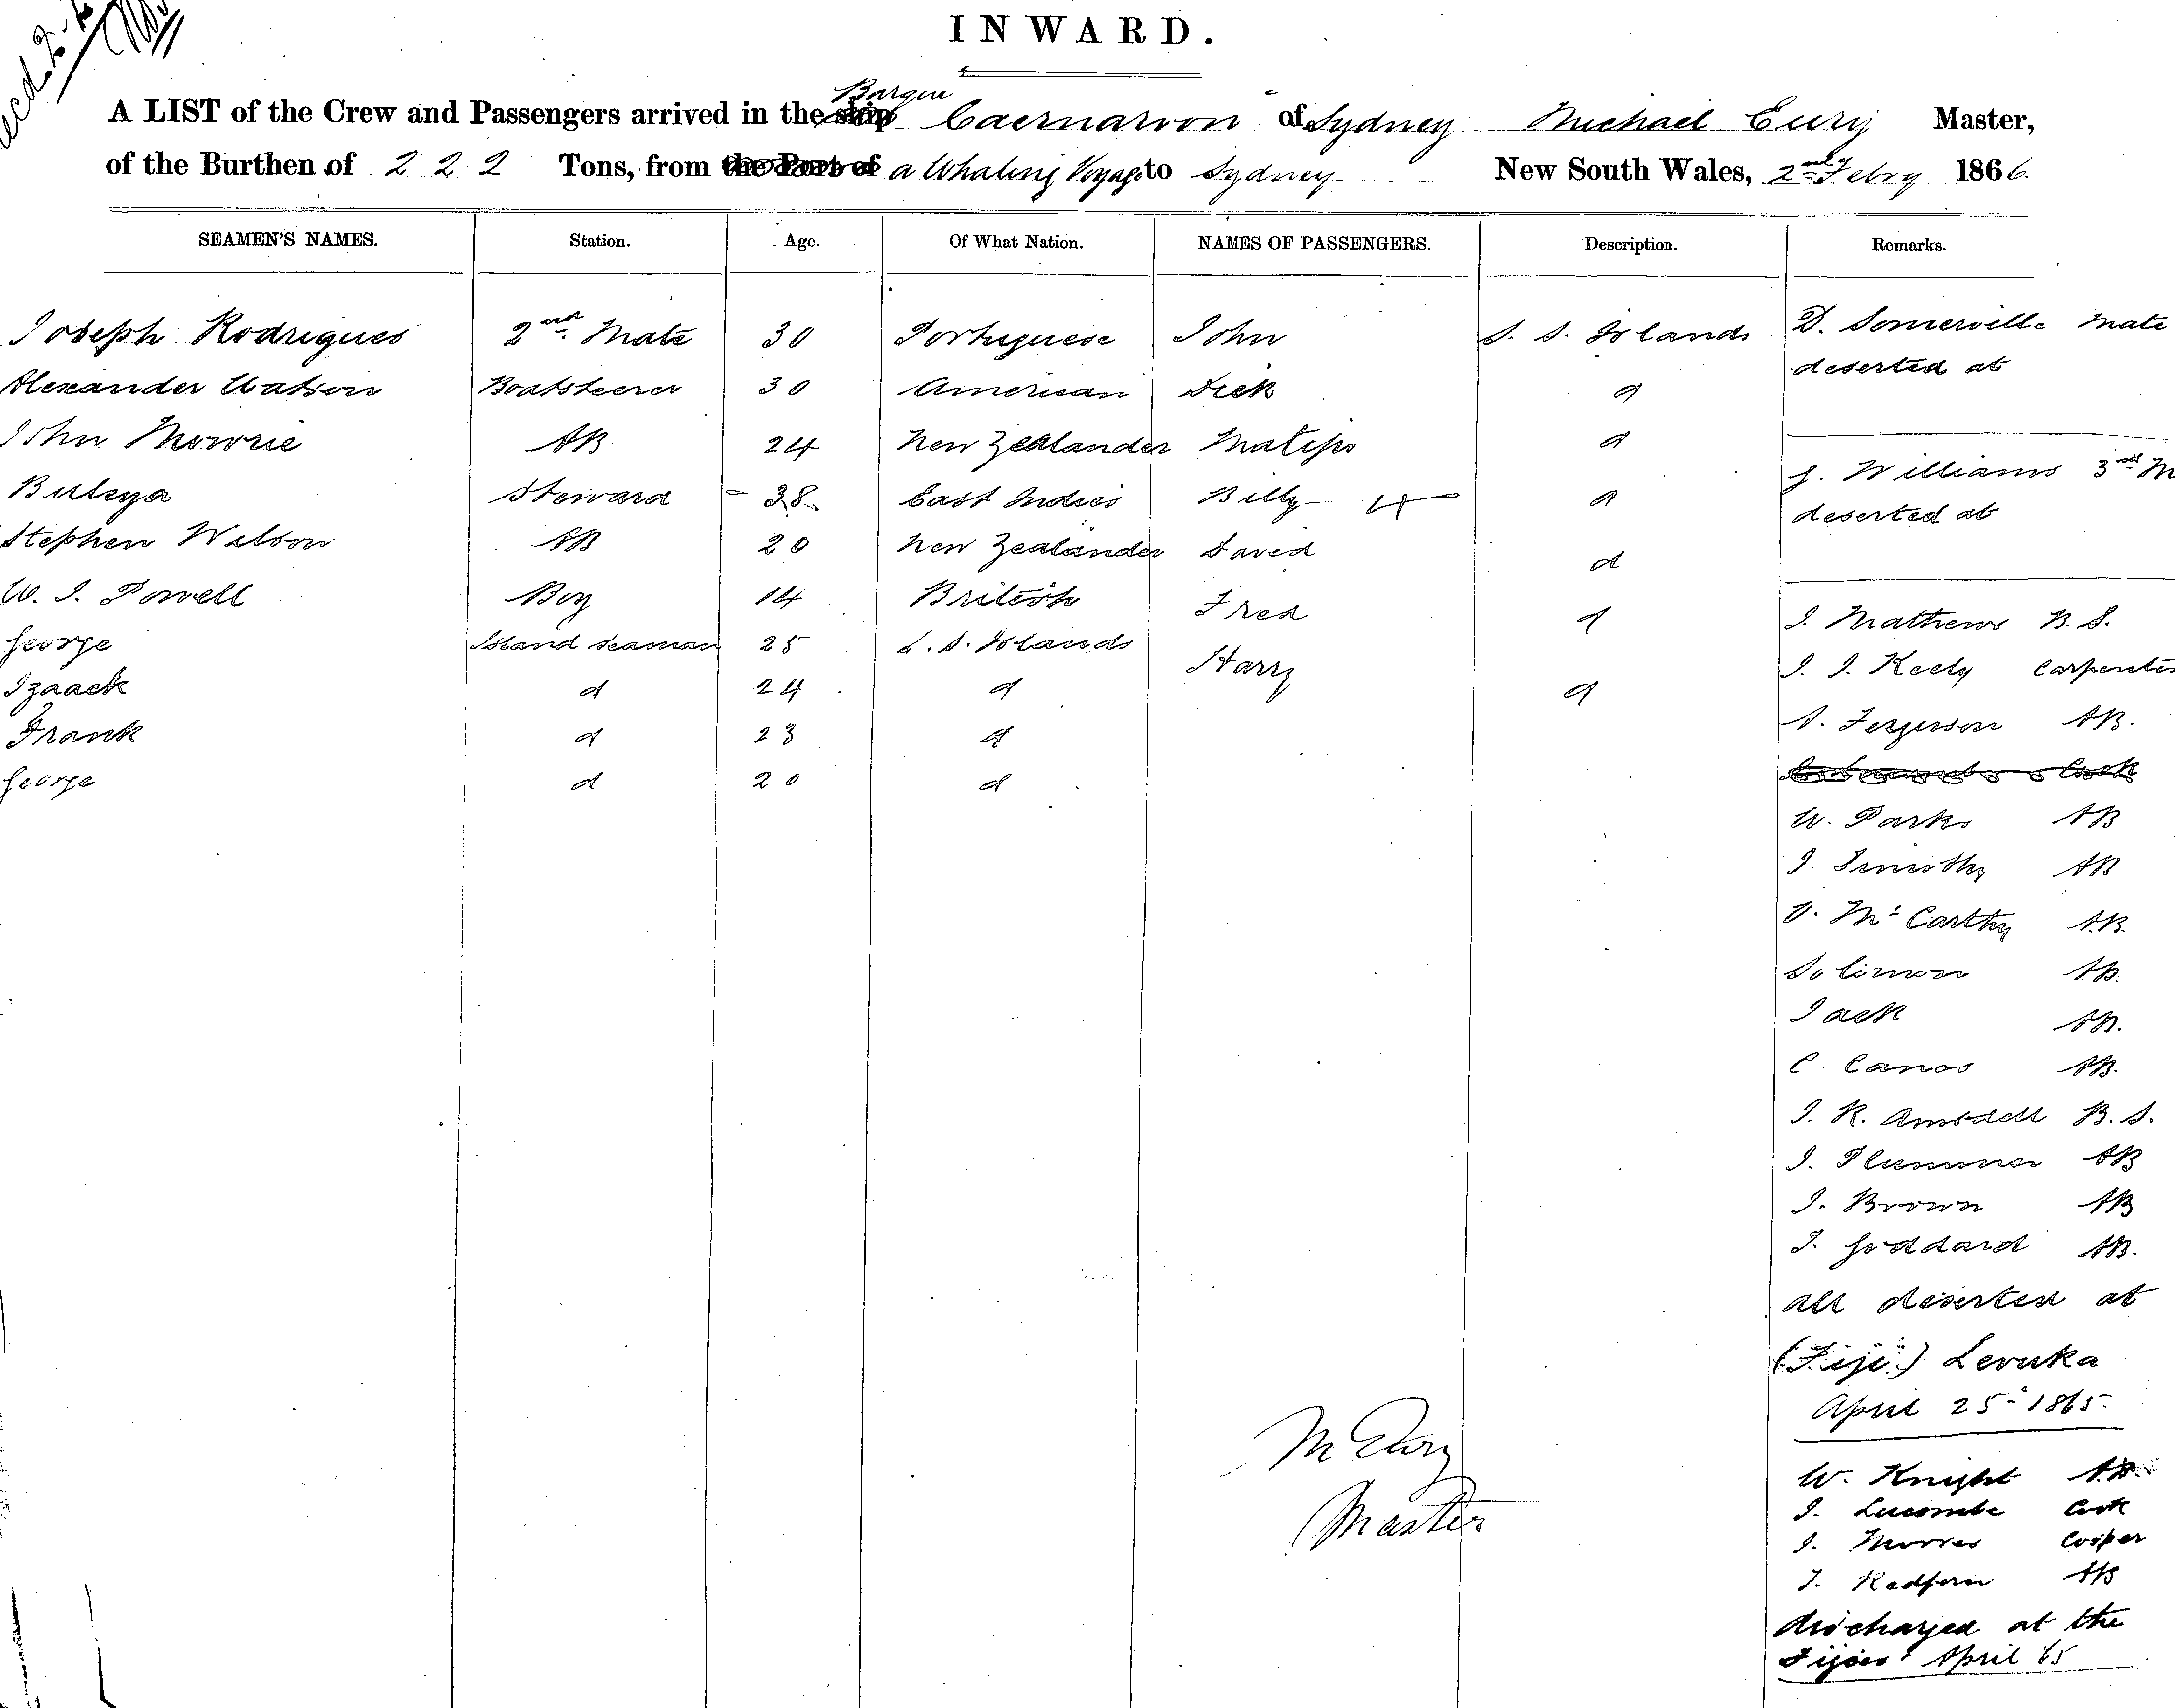 INWARD.
A LIST of the Crew and Passengers arrived in the ship Barque Caernarvon of Sydney Michael Eury Master,
of the Burthen of 222 Tons, from the Port of a Whaling Voyage to Sydney New South Wales, 2nd Febry 1866.
SEAMEN'S NAMES. Station. Age. Of What Nation. NAMES OF PASSENGERS. Description. Remarks.
Joseph Rodrigues 2nd Mate 30 Portuguese John S. S. Islands D. Somerville Mate
deserted at
Alexander Watson Boatsteerer 30 American Dick d
John Mowrie AB 24 New Zealander Matipo d
J. Williams 3rd M
Steward 38 East Indies Billy d
deserted at
Stephen Wilson AB 20 New Zealander David d
W. J. Powell Boy 14 British Fred d
J. Mathews B. S.
George Island seaman 25 S. S. Islands Harry d
J. J. Keely Carpenter
Izaack d 24 d
Frank d 23 d
S. Fergerson AB.
George d 20 d
W. Parks AB
J. Timothy AB
McCarthy A.B.
Solimon AB.
Jack AB.
C. Canos AB.
J. R. Amsdell B. S.
J. Plummer AB
J. Brown AB
J. Goddard AB.
all deserted at
(Fiji) Levuka
April 25 1865.
M Eury
Master
W. Knight A.B.
J. Luscombe Cook
J. Morres Cooper
T. Radforn AB
discharged at the
Fijies April 65